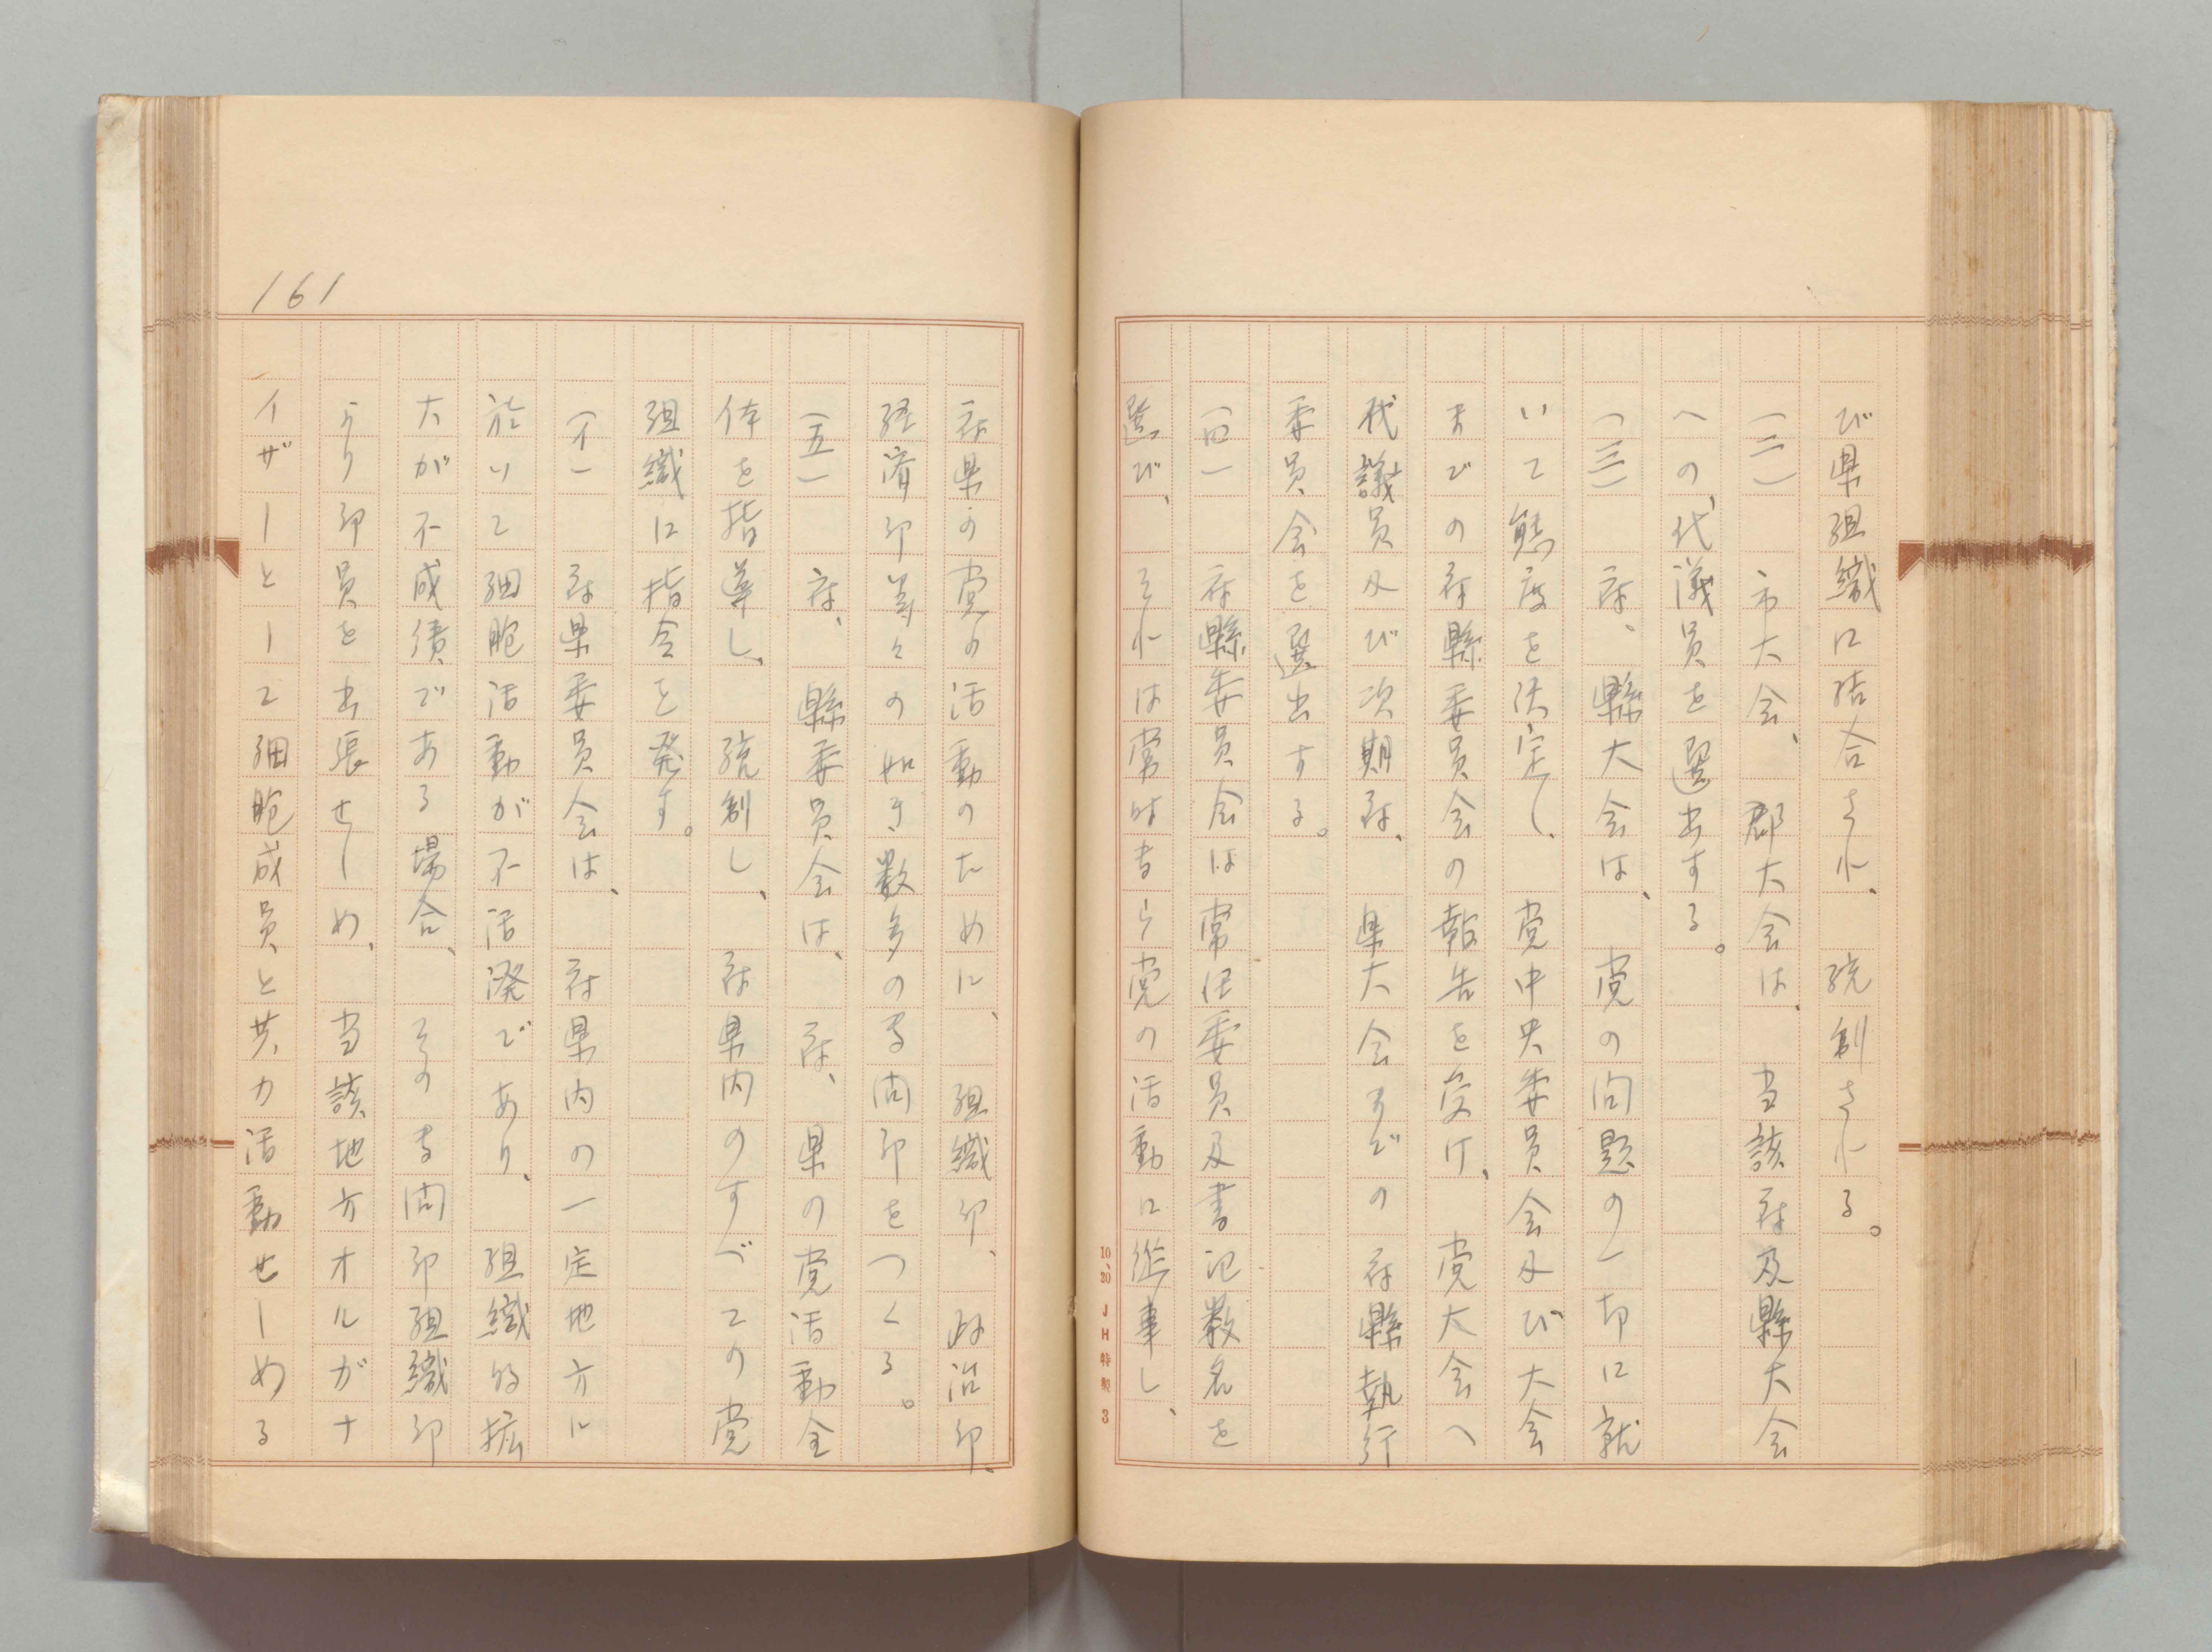 び県組織に結合され、統制される。
(二) 市大会、郡大会は、当該府及縣大会
への、代議員を選出する。
(三) 府、縣大会は、党の問題の一切に就
いて態度を決定し、党中央委員会及び大会
までの府縣委員会の報告を受け、党大会へ
代議員及び次期府、県大会までの府縣執行
委員会を選出する。
(四) 府縣委員会は常任委員及書記数名を
選び、それは常時専ら党の活動に従事し、
10、20 JH特製 3
府県の党の活動のために、組織部、政治部、
経済部等々の如き数多の専問部をつくる。
(五) 府、縣委員会は、府、県の党活動全
体を指導し、統制し、府県内のすべての党
組織に指令を発す。
(イ) 府県委員会は、府県内の一定地方に
於いて細胞活動が不活溌であり、組織的拡
大が不成績である場合、その専問部組織部
より部員を出張せしめ、当該地方オルガナ
イザーとして細胞成員と共力活動せしめる
161